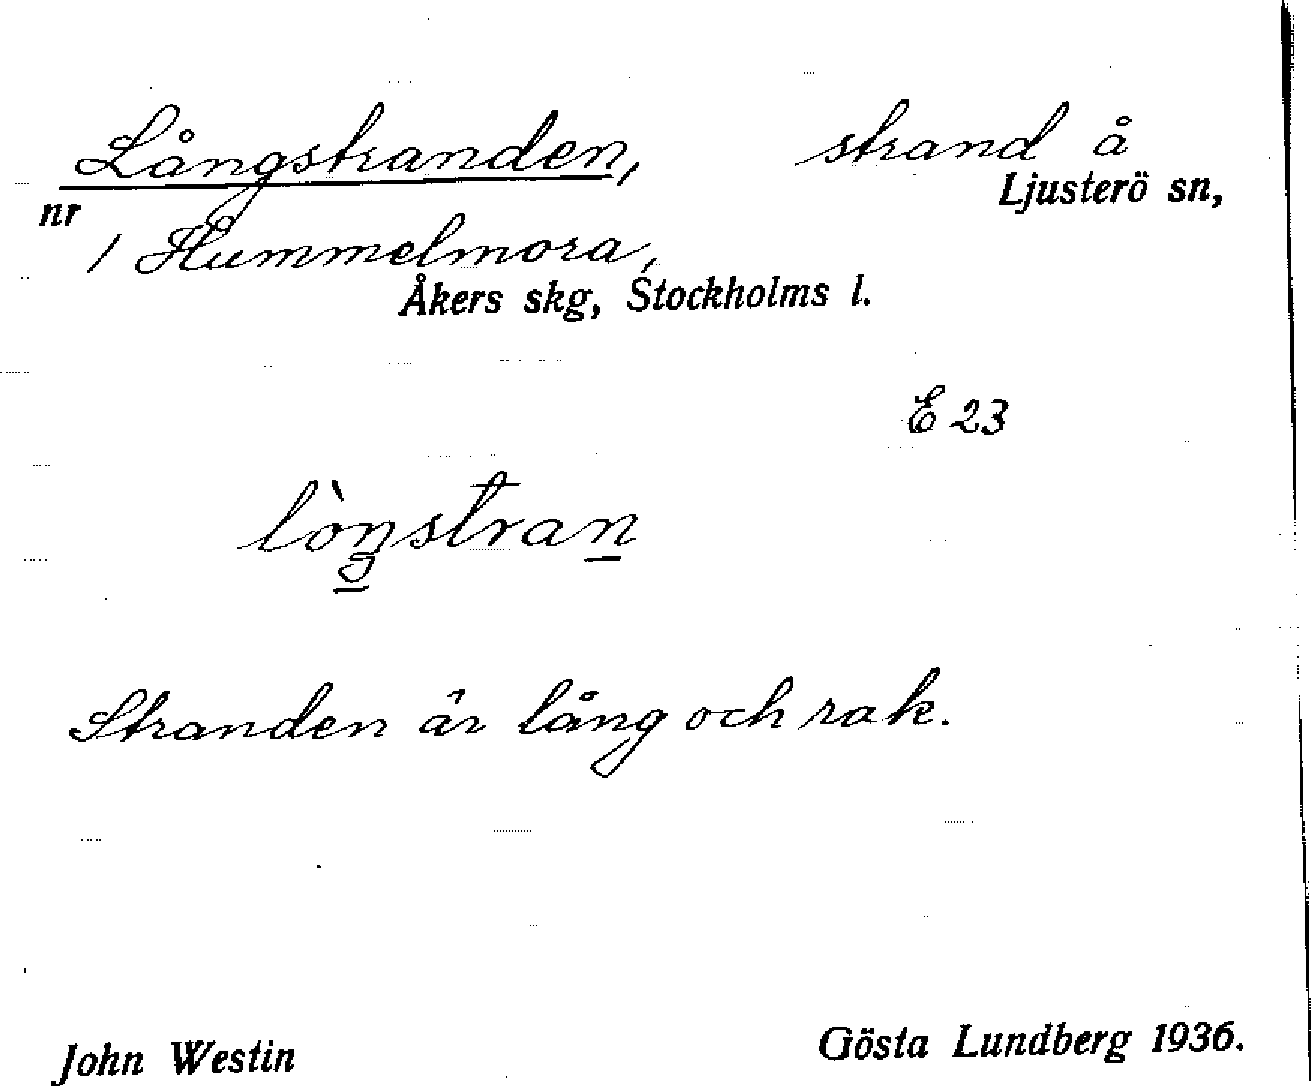 Långstranden, strand å
nr Ljusterö sn,
1 Hummelmora,
Åkers skg, Stockholms l.
E 23
lòŋstran
Stranden är lång och rak.
John Westin Gösta Lundberg 1936.